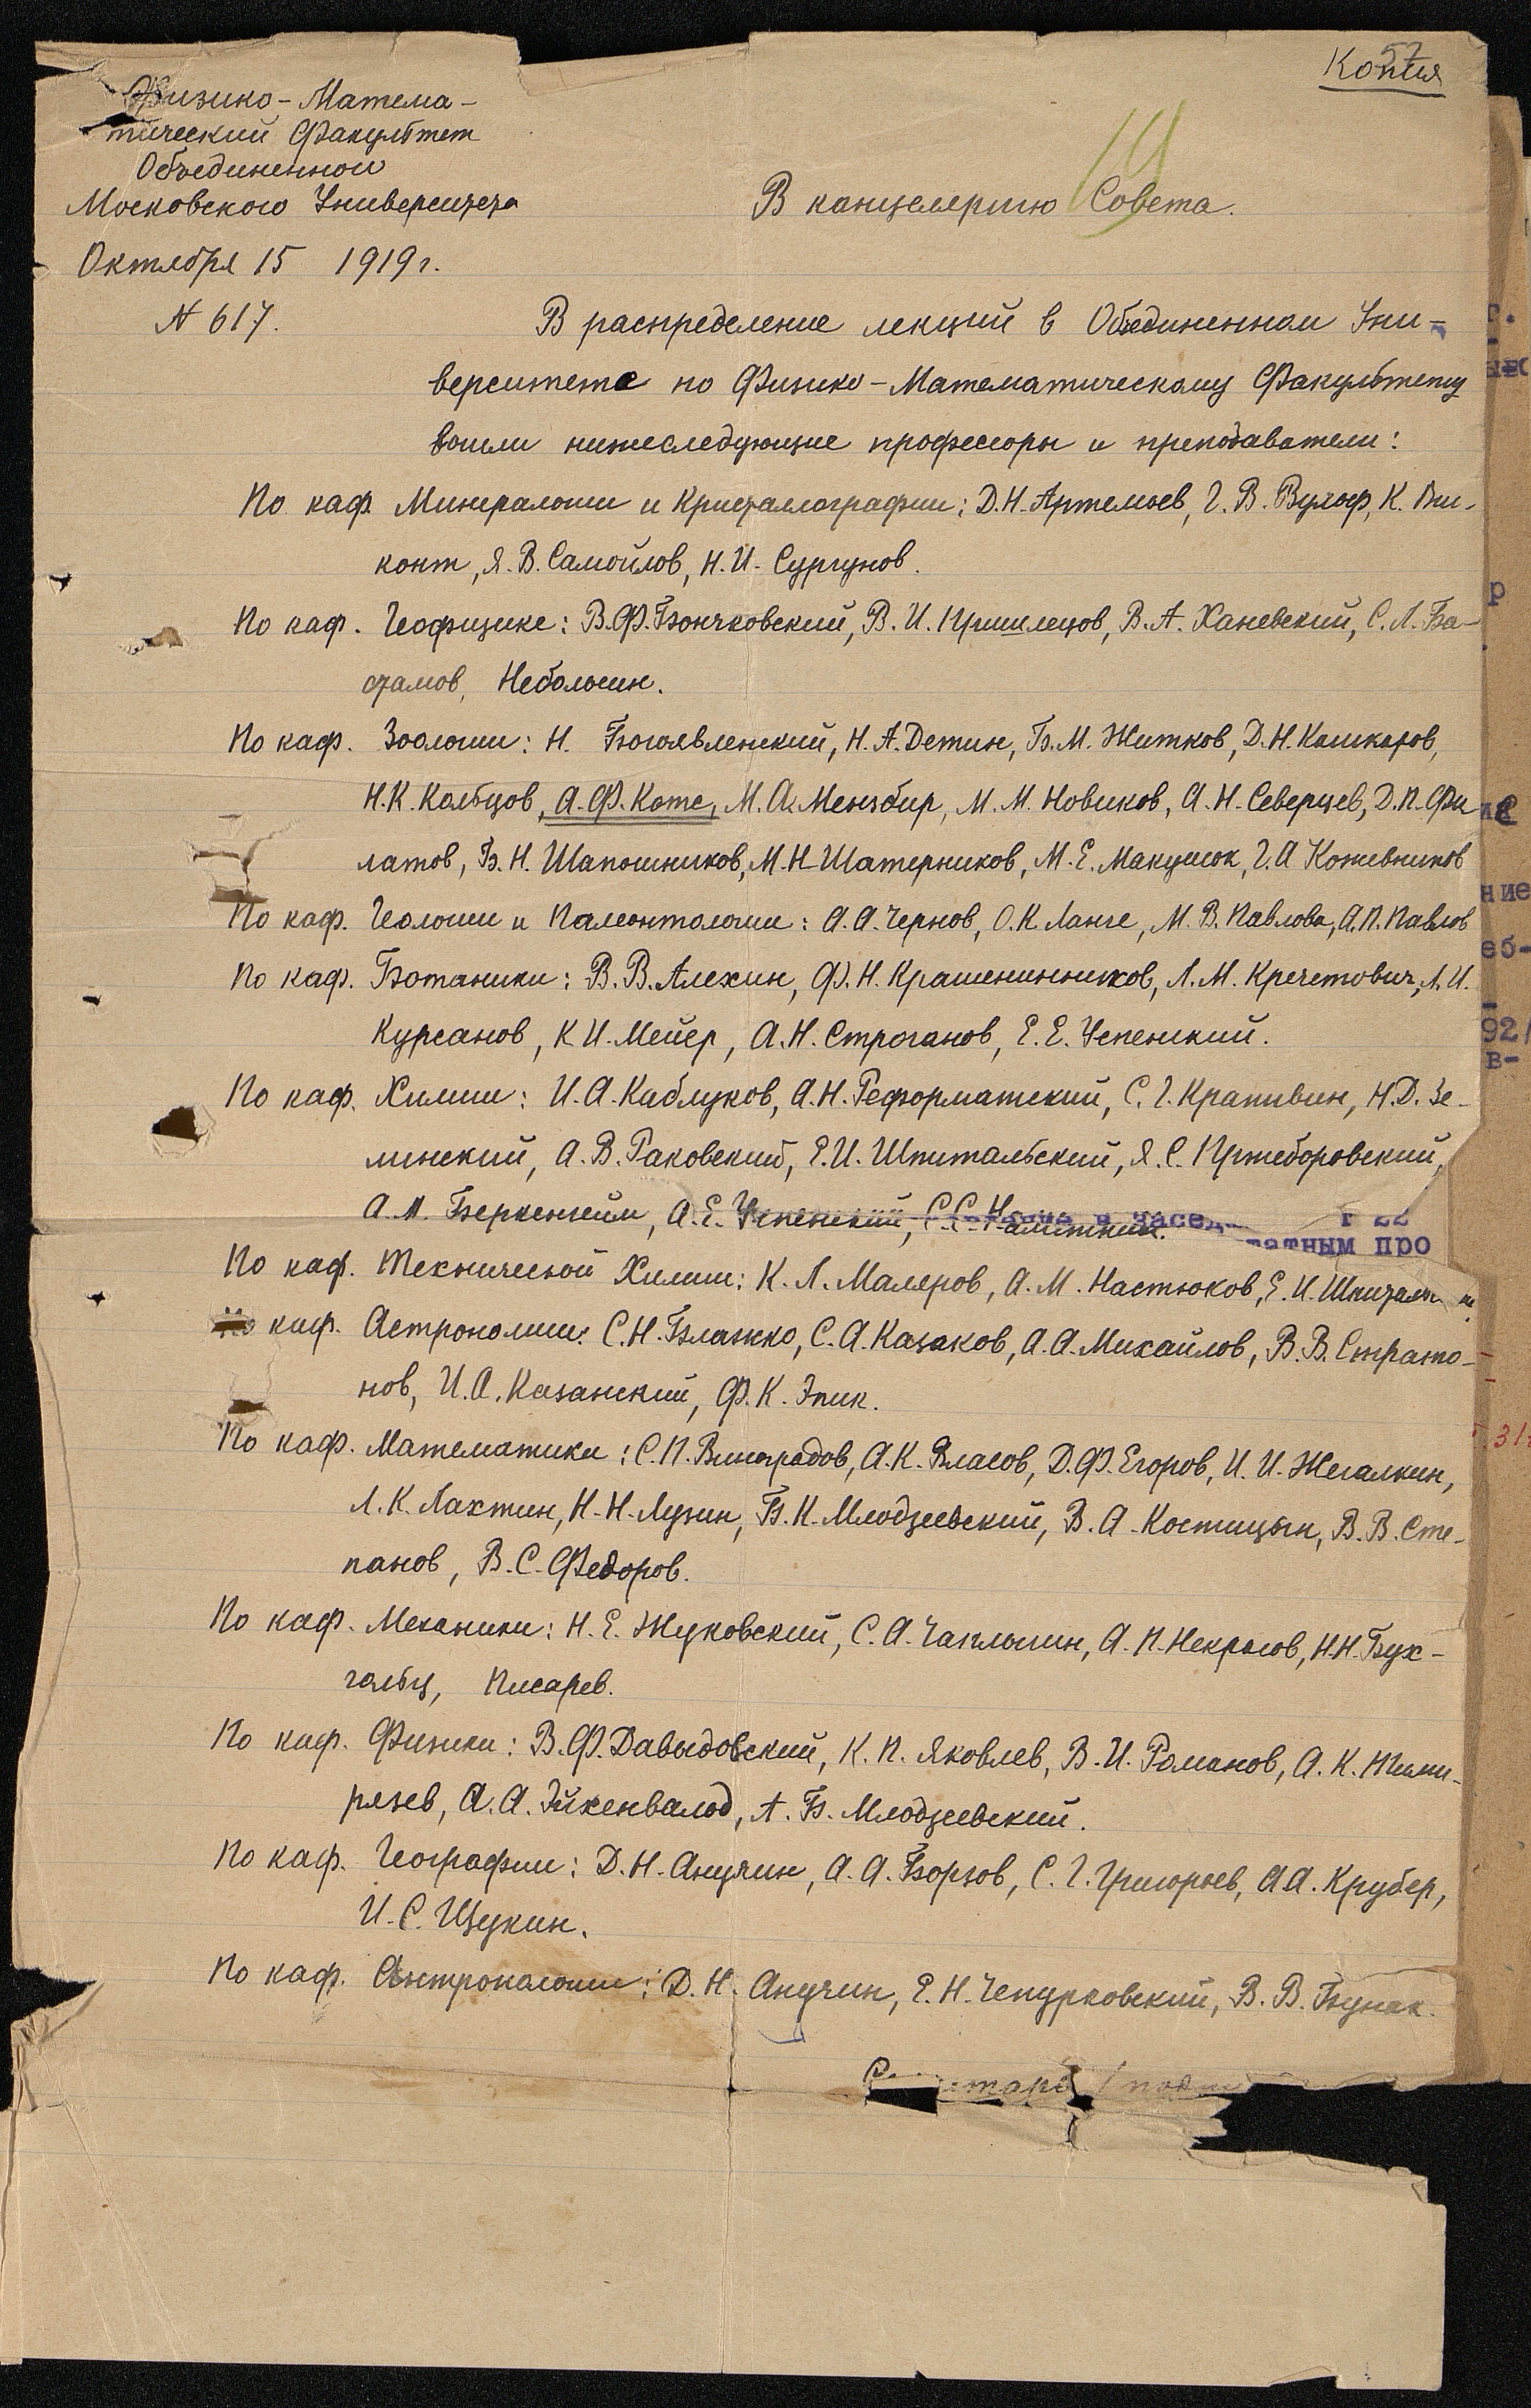 Копия
57
19
Физико-Матема-
тический Факультет
Объединенного
Московского Университета
Октября 15 1919 г.
N 617.
В канцелярию Совета.
В распределение лекций в Объединенном Уни-
верситете по Физико-Математическому Факультету
вошли нижеследующие профессоры и преподаватели:
По каф. Минералогии и Кристаллографии: Д.Н. Артемьев, Г.В. Вульф, К. Ви-
конт, Я.В. Самойлов, Н.И. Сургунов.
По каф. Геофизике: В.Ф. Бончковский, В.И. Пришлецов, В.А. Ханевский, С.Л. Ба-
стамов, Небольсин.
По каф. Зоологии: Н. Богоявленский, Н.А. Детин, Б.М. Житков, Д.Н. Кашкаров,
Н.К. Кольцов, А.Ф. Котс, М.А. Мензбир, М.М. Новиков, А.Н. Северцев, Д.П. Фи-
латов, Б.Н. Шапошников, М.Н. Шатерников, М.Е. Макушок, Г.А. Кожевников
По каф. Геологии и Палеонтологии: А.А. Чернов, О.К. Ланге, М.В. Павлова, А.П. Павлов
По каф. Ботаники: В.В. Алехин, Ф.Н. Крашенинников, Л.М. Кречетович, Л.И.
Курсанов, К.И. Мейер, А.Н. Строганов, Е.Е. Успенский.
По каф. Химии: И.А. Каблуков, А.Н. Реформатский, С.Г. Крапивин, Н.Д. Зе-
линский, А.В. Раковский, Е.И. Шпитальский, Я.С. Пржеборовский,
А.М. Беркенгейм, А.Е. Успенский, С.С. Наметкин.
татным про
По каф. Технической Химии: К.Л. Маляров, А.М. Настюков, Е.И. Шпитальский
По каф. Астрономии: С.Н. Блажко, С.А. Казаков, А.А. Михайлов, В.В. Страто-
нов, И.А. Казанский, Ф.К. Эпик.
По каф. Математики: С.П. Виноградов, А.К. Власов, Д.Ф. Егоров, И.И. Жегалкин,
Л.К. Лахтин, Н.Н. Лузин, Б.К. Млодзеевский, В.А. Костицын, В.В. Сте-
панов, В.С. Федоров.
По каф. Механики: Н.Е. Жуковский, С.А. Чаплыгин, А.П. Некрасов, Н.Н. Бух-
гольц, Писарев.
По каф. Физики: В.Ф. Давыдовский, К.П. Яковлев, В.И. Романов, А.К. Тими-
рязев, А.А. Эйхенвальд, А.Б. Млодзеевский.
По каф. Географии: Д.Н. Анучин, А.А. Борзов, С.Г. Григорьев, А.А. Крубер,
И.С. Щукин.
По каф. Антропологии: Д.Н. Анучин, Е.Н. Чепурковский, В.В. Бунак.
Секретарь